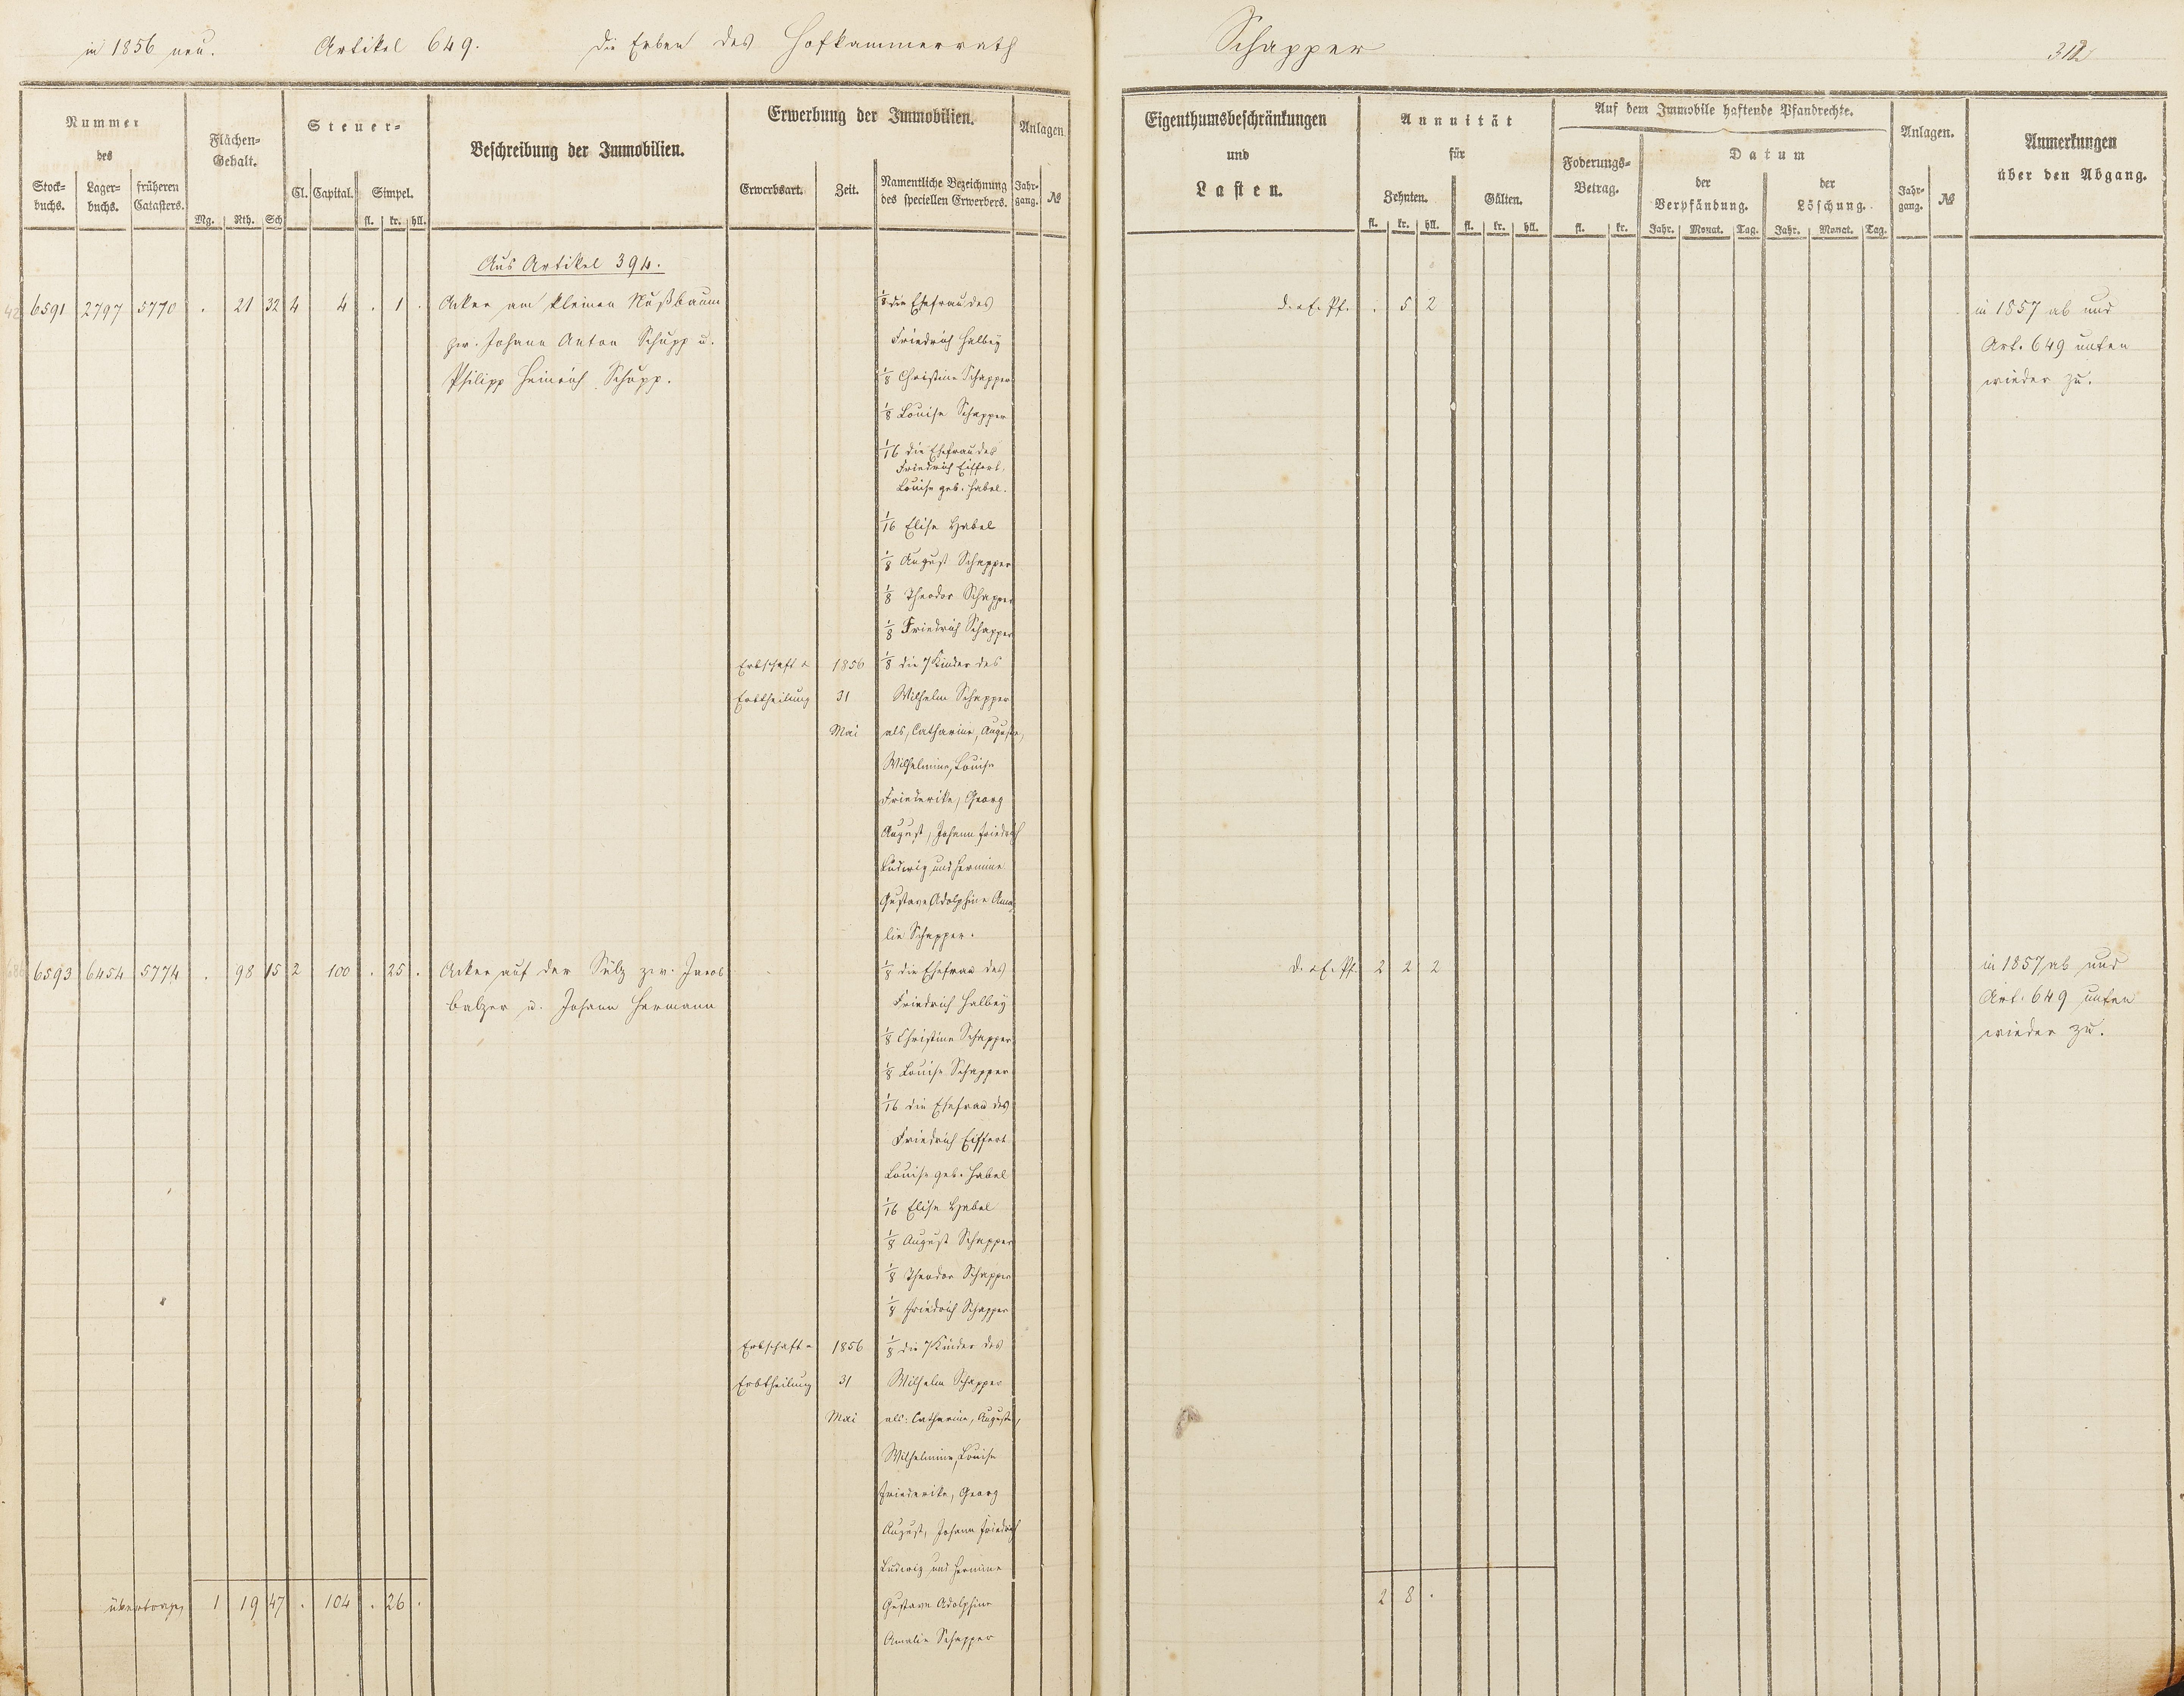 in 1856 neu. Artikel 649. Die Erben des Hofkammerrath Schapper 312
Nummer
des
Stock-
buchs.
Lager-
buchs.
früheren
Catasters.
Flächen-
Gehalt.
Mg. Rth. Sch
Steuer-
Cl. Capital. Simpel.
fl. kr. hll.
Beschreibung der Immobilien.
Erwerbung der Immobilien.
Erwerbsart. Zeit.
Namentliche Bezeichnung
des speciellen Erwerbers.
Anlagen
Jahr-
gang. №
Eigenthumsbeschränkungen
und
Lasten.
Annuität
für
Zehnten. Gülten.
fl. kr. hll. fl. kr. hll.
Auf dem Immobile haftende Pfandrechte.
Foderungs-
Betrag.
fl. kr.
Datum
der
Verpfändung.
Jahr. Monat. Tag.
der
Löschung.
Jahr. Monat. Tag.
Anlagen.
Jahr-
gang. №
Anmerkungen
über den Abgang.
Aus Artikel 394.
6591 2797 5770 . 21 32 4 4 . 1 . Acker am kleinen Nußbaum
zw. Johann Anton Schupp u.
Philipp Heinrich Schupp.
1/8 die Ehefrau des
Friedrich Halbey
1/8 Christine Schapper
1/8 Louise Schapper
1/16 die Ehefrau des
Friedrich Eiffert,
Louise geb. Habel.
1/16 Elise Habel
1/8 August Schapper
1/8 Theodor Schapper
1/8 Friedrich Schapper
Erbschaft u 1856 1/8 die 7 Kinder des
Erbtheilung 31 Wilhelm Schapper
Mai als, Catharine, Auguste,
Wilhelmine, Louise
Friederike, Georg
August, Johann Friedrich
Ludwig und Hermine
Gustave Adolphine Ama-
lie Schapper.
d. & E. Pf. . 5 2
in 1857 ab und
Art. 649 unten
wieder zu.
6593 6454 5774 . 98 15 2 100 . 25 . Acker auf der Sülz zw. Jacob
Balzer u. Johann Hermann
1/8 die Ehefrau des
Friedrich Halbey
1/8 Christine Schapper
1/8 Louise Schapper
1/16 die Ehefrau des
Friedrich Eiffert
Louise geb. Habel
1/16 Elise Habel
1/8 August Schapper
1/8 Theodor Schapper
1/8 Friedrich Schapper
Erbschaft u 1856 1/8 die 7 Kinder des
Erbtheilung 31 Wilhelm Schapper
Mai als: Catharine, Auguste,
Wilhelmine, Louise
Friederike, Georg
August, Johann Friedrich
Ludwig und Hermine
Gustave Adolphine
Amalie Schapper
d. & E. Pf. 2 2 2
in 1857 ab und
Art. 649 unten
wieder zu.
übertragen 1 19 47 . 104 . 26 .
2 8 .